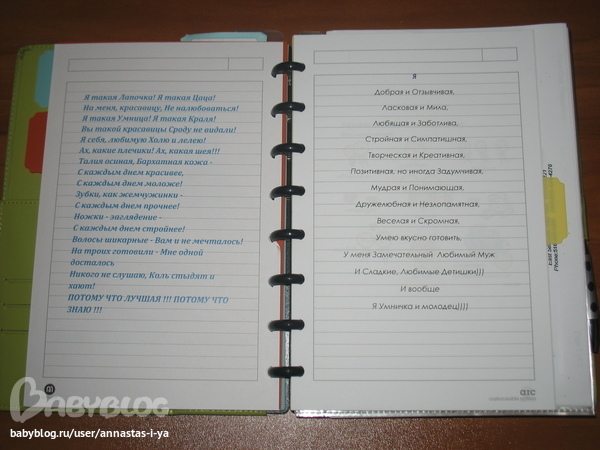 Я такая Лапочка! Я такая Цаца!
На меня, красавицу, Не налюбоваться!
Я такая Умница! Я такая Краля!
Вы такой красавицы Сроду не видали!
Я себя, любимую Холю и лелею!
Ах, какие плечики! Ах, какая шея!!!
Талия осиная, Бархатная кожа -
С каждым днем красивее,
С каждым днем моложе!
Зубки, как жемчужинки -
С каждым днем прочнее!
Ножки - загляденье -
С каждым днем стройнее!
Волосы шикарные - Вам и не мечталось!
На троих готовили - Мне одной
досталось
Никого не слушаю, Коль стыдят и
хают!
ПОТОМУ ЧТО ЛУЧШАЯ !!! ПОТОМУ ЧТО
ЗНАЮ !!!
Я
Добрая и Отзывчивая,
Ласковая и Мила,
Любящая и Заботлива,
Стройная и Симпатишная,
Творческая и Креативная,
Позитивная, но иногда Задумчивая,
Мудрая и Понимающая,
Дружелюбная и Незлопамятная,
Веселая и Скромная,
Умею вкусно готовить,
У меня Замечательный Любимый Муж
И Сладкие, Любимые Детишки)))
И вообще
Я Умничка и молодец))))
arc
BABYBLOG
babyblog.ru/user/annastas-i-ya